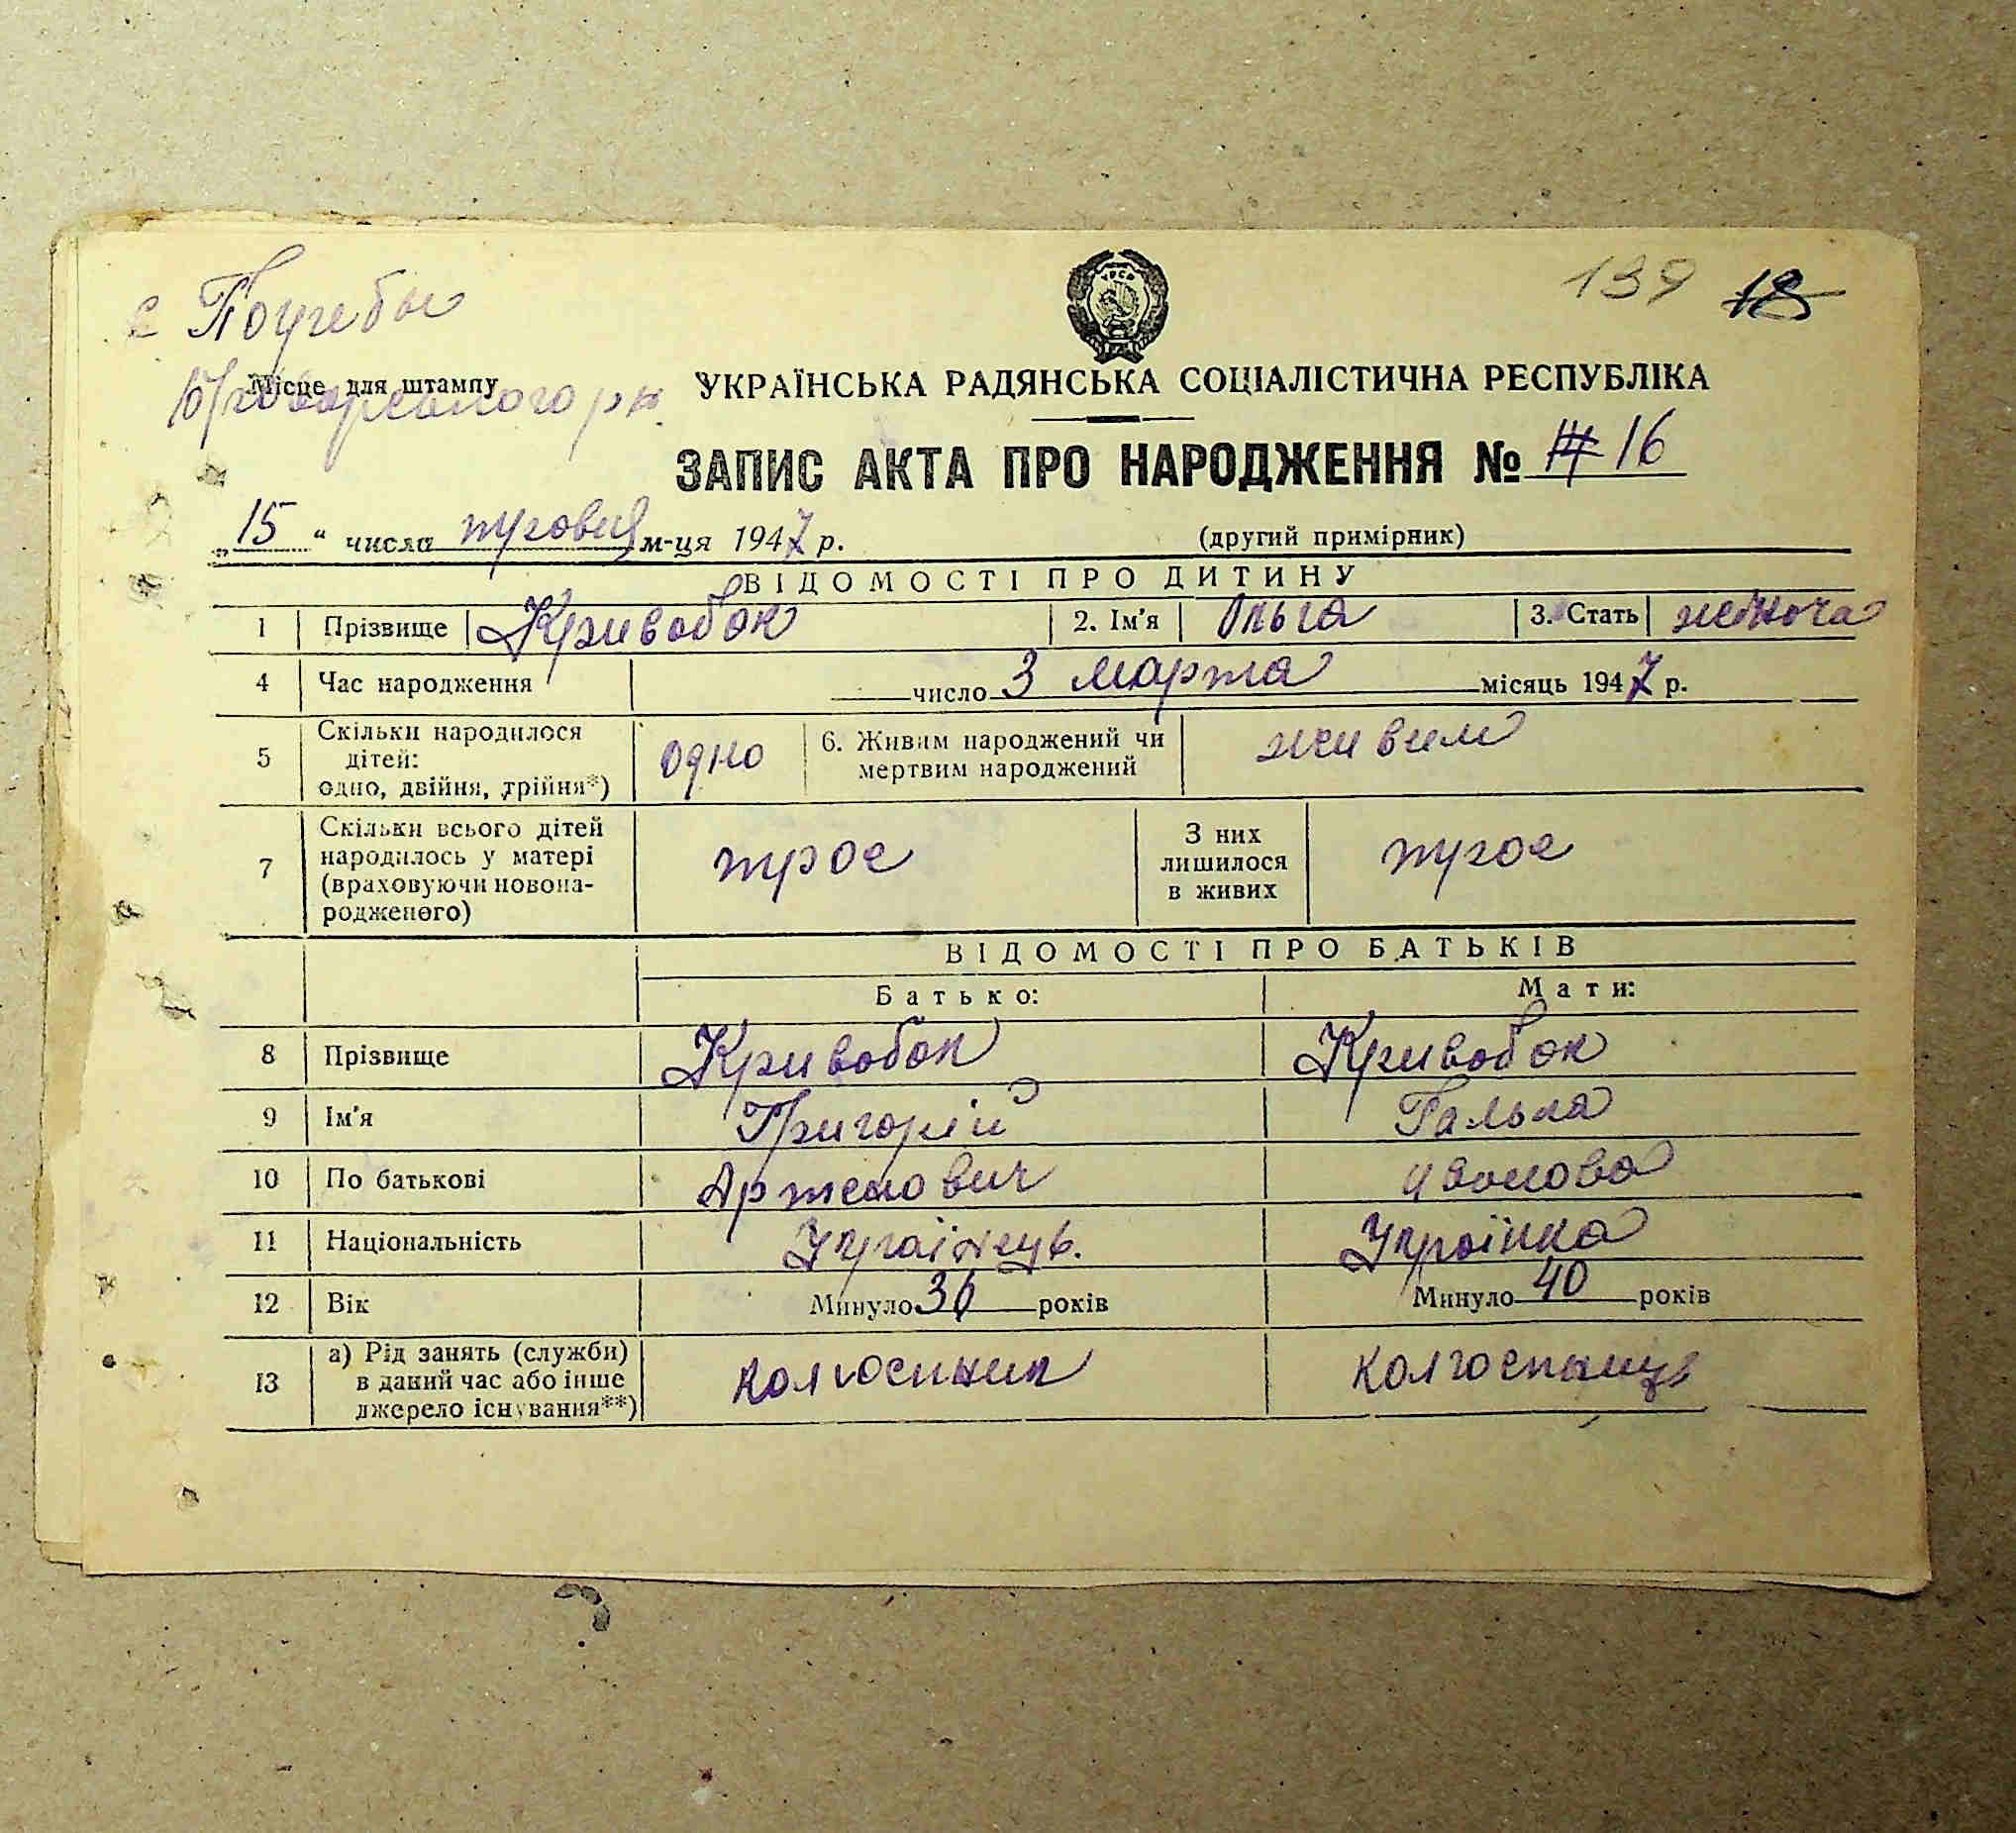 с Погребы
Броварського рн.
Місце для штампу
139 18
УРСР
УКРАЇНСЬКА РАДЯНСЬКА СОЦІАЛІСТИЧНА РЕСПУБЛІКА
ЗАПИС АКТА ПРО НАРОДЖЕННЯ № 16
„15“ числа м-ця 1947 р. (другий примірник)
ВІДОМОСТІ ПРО ДИТИНУ
1 Прізвище Кривобок 2. Ім'я Ольга 3. Стать жіноча
4 Час народження число 3 марта місяць 1947 р.
5 Скільки народилося дітей: одно, двійня, трійня*) одно 6. Живим народжений чи мертвим народжений живим
7 Скільки всього дітей народилось у матері (враховуючи новонародженого) трое З них лишилося в живих трое
ВІДОМОСТІ ПРО БАТЬКІВ
Батько: Мати:
8 Прізвище Кривобок Кривобок
9 Ім'я Григорій Галька
10 По батькові Артемович Ивановна
11 Національність Українець. Українка
12 Вік Минуло 36 років Минуло 40 років
13 а) Рід занять (служби) в даний час або інше джерело існування**) колгоспник колгоспниця